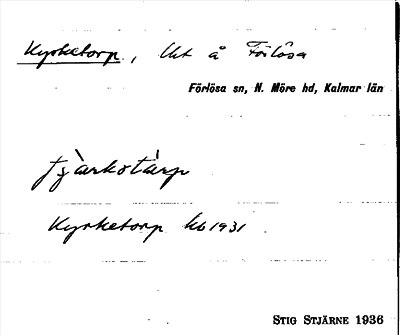 Kyrketorp, Ut å Förlösa
Förlösa sn, N. Möre hd, Kalmar län
Kyrketorp kb 1931
STIG STJÄRNE 1936